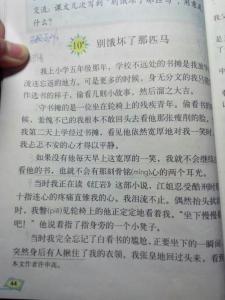 交流：课文几次写到“别饿坏了那
什么？
10 别饿坏了那匹马
我上小学五年级那年，学校不远处的书摊是我放学
流连忘返的地方。可是更多的时候，身无分文的我只能
作选书的样子，偷看几则小故事，然后溜之大吉。
守书摊的是一位坐在轮椅上的残疾青年。偷看
候，羞愧不已的我根本不敢回头去看他那张瘦削的脸。
我第二天上学经过书摊，看见他依然宽厚地对我一笑时，
我忐忑不安的心才得以平静。
如果没有他每天早上这宽厚的一笑，我就不会继续
看他的书，也就不会有那刻骨铭(míng)心的两个耳光。
当时我正在读《红岩》这部小说，江姐忍受酷刑时
十指连心的疼痛直锥我的心。我泪流不止。偶然抬头
时，我瞥(piē)见轮椅上的他正定定地看着我。“坐下慢慢
吧！”他说着指了指身旁的一个小凳子。
当时我完全忘记了白看书的尴尬，正要坐下的一瞬间
突然身后有人揪住了我的衣领，我张皇地回过头来，看到
本文作者许申高。
44